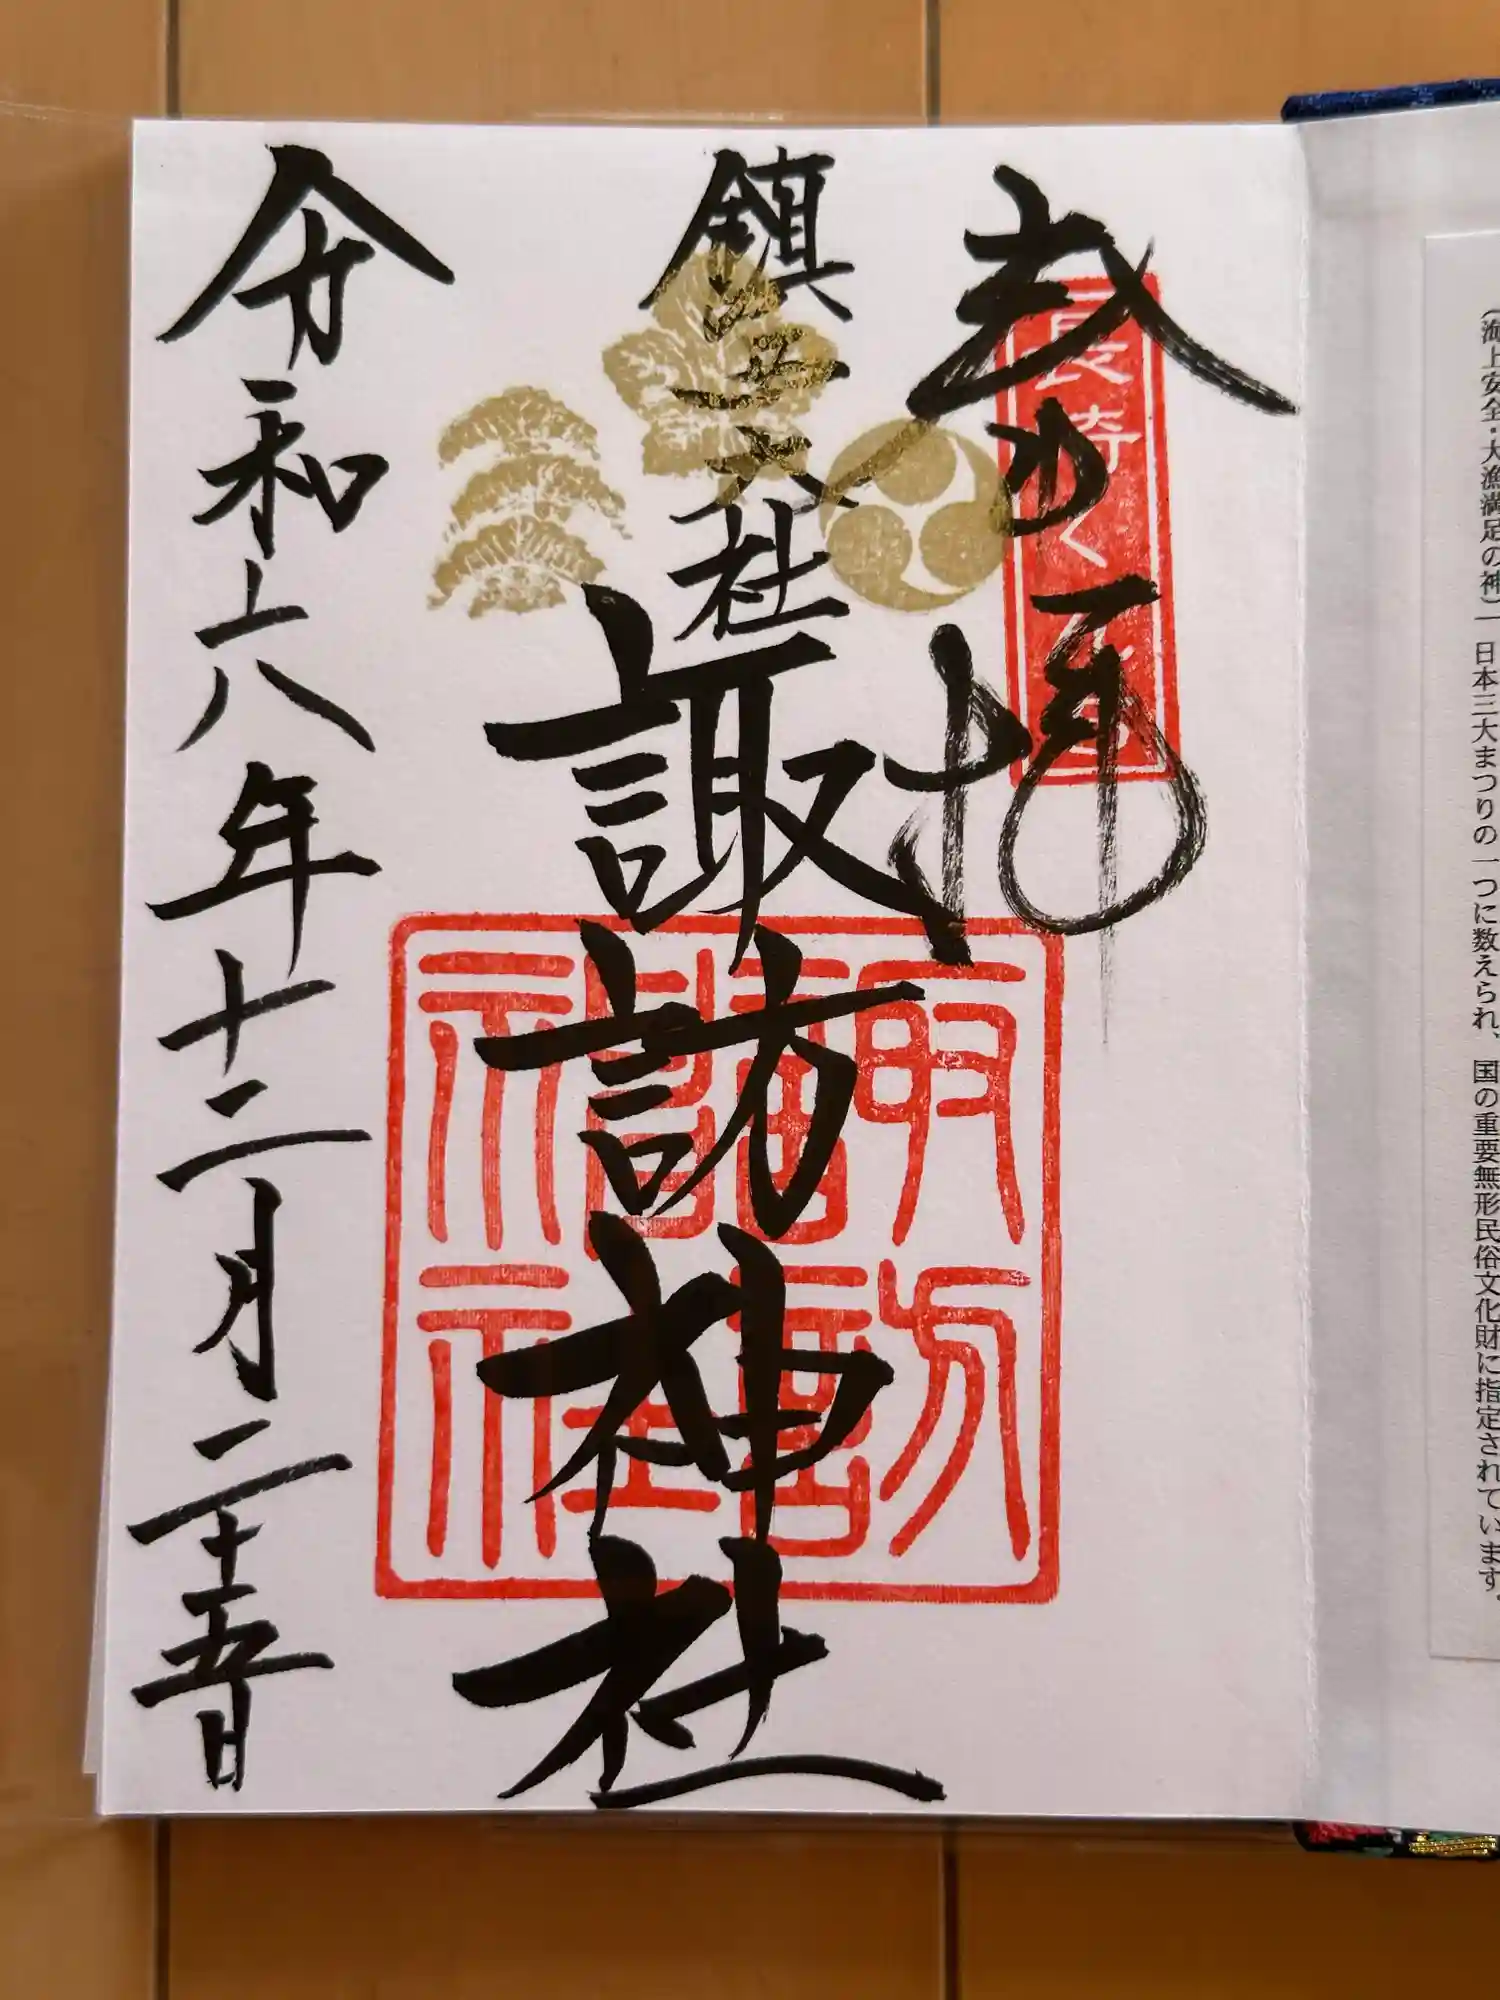 (海上安全・大漁満足の神)
日本三大まつりの一つに数えられ、国の重要無形民俗文化財に指定されています。
拝
長崎く
鎮西大社
諏訪神社
諏訪
神社
令和六年十二月二十五日